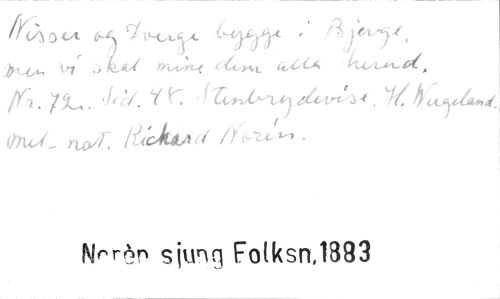 Nisser og Dverge bygge i Bjerge,
men vi skal mine dem alla herud.
Nr. 72. Sid. 48. Stenbrydevise. H. Wergeland.
mel-nat. Richard Norén.
Norèn sjung Folksn,1883